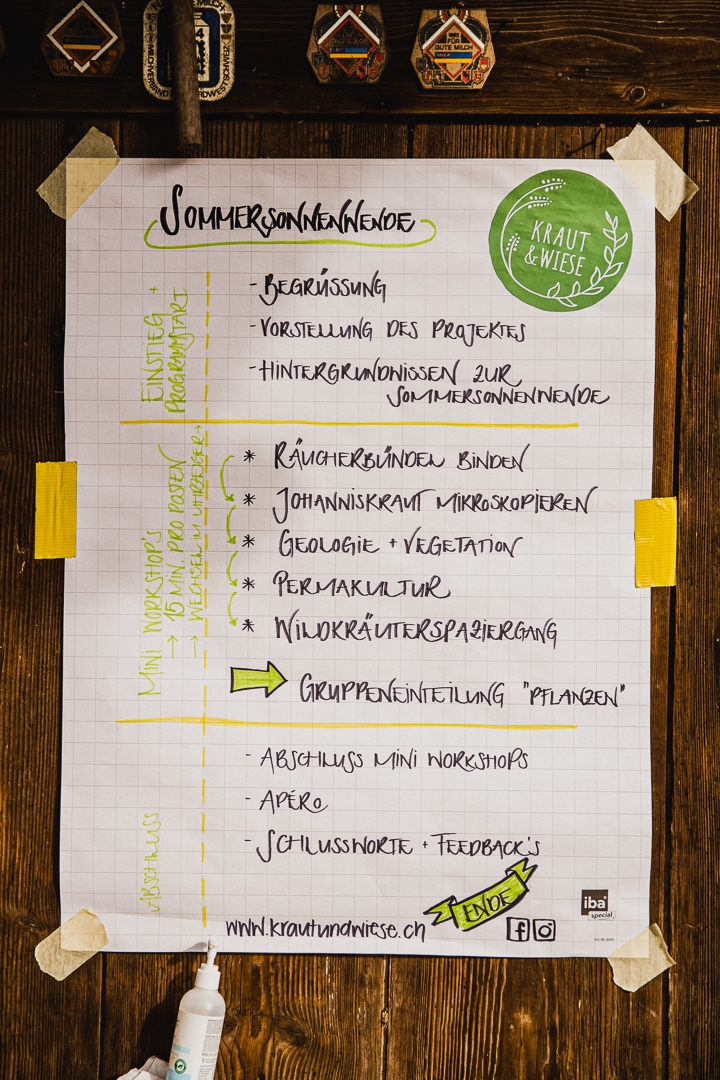 FÜR GUTE MILCH
SOMMERSONNENWENDE
KRAUT
& WIESE
EINSTIEG +
PROGRAMMSTART
- BEGRÜSSUNG
- VORSTELLUNG DES PROJEKTES
- HINTERGRUNDWISSEN ZUR
SOMMERSONNENWENDE
MINI WORKSHOP'S
→ 15 MIN. PRO POSTEN
→ WECHSEL IM UHRZEIGER →
* RÄUCHERBÜNDEL BINDEN
* JOHANNISKRAUT MIKROSKOPIEREN
* GEOLOGIE + VEGETATION
* PERMAKULTUR
* WILDKRÄUTERSPAZIERGANG
GRUPPENEINTEILUNG "PFLANZEN"
ABSCHLUSS
- ABSCHLUSS MINI WORKSHOPS
- APÉRO
- SCHLUSSWORTE + FEEDBACK'S
ENDE
www.krautundwiese.ch
iba
special